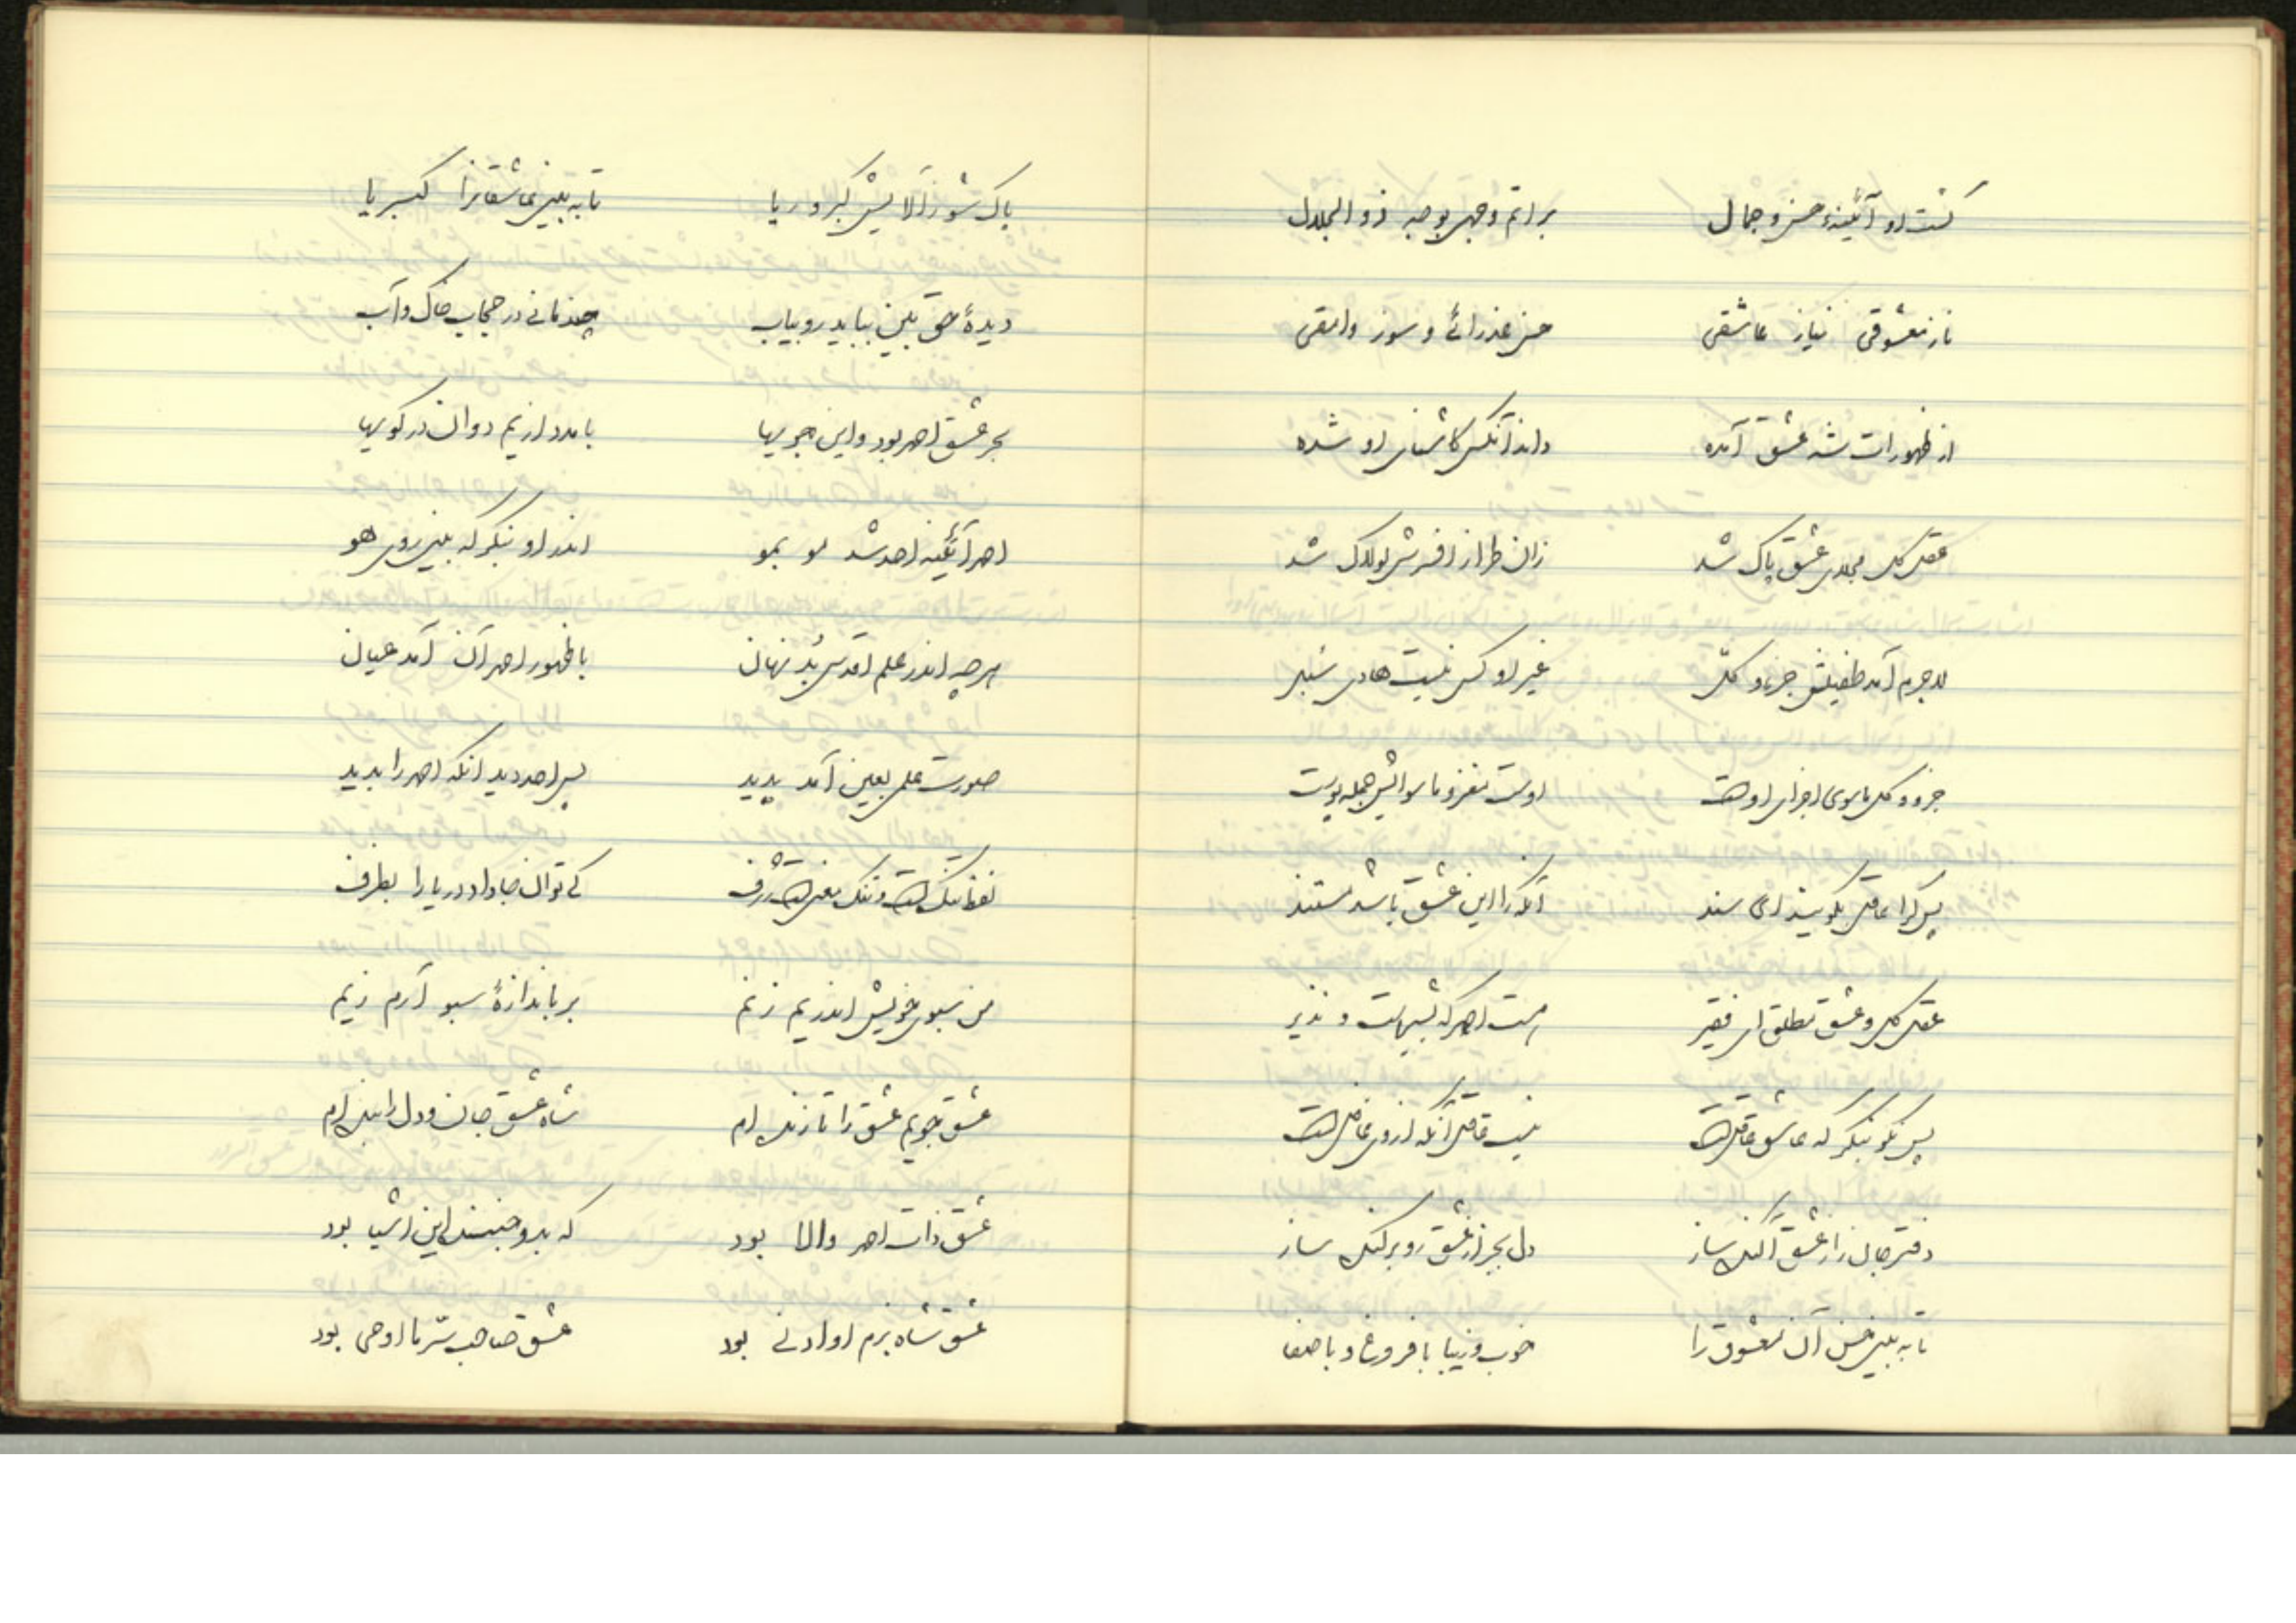 گشت او آئینهٔ حسن و جمال    بر اتم وجهی بوجه ذو الجلال
ناز معشوقی نیاز عاشقی    حسن عذرائی و سوز وامقی
از ظهورات شه عشق آمده    داند آنکس کاشنای او شده
عقل کل مجلای عشق پاک شد    زان طراز افسرش لولاک شد
لاجرم آمد طفیلش جزء و کل    غیر او کس نیست هادی سبل
جزو و کل ماسوی اجزای اوست    اوست مغز و ماسوایش جمله پوست
پس کرا عاقل بگویند ای سند    آنکه را این عشق باشد مستند
عقل کل و عشق مطلق ای فقیر    هست احمد که بشیر است و نذیر
پس نکو بنگر که عاشق عاقل است    نیست عاقل آنکه از وی غافل است
دفتر جان را ز عشق آکنده ساز    دل بجز از عشق رو برکنده ساز
تا به بینی حسن آن معشوق را    خوب و زیبا با فروغ و با صفا
پاک شو ز آلایش کبر و ریا    تا به بینی عاشقانرا کبریا
دیدهٔ حق بین بباید رو بیاب    چند مانی در حجاب خاک و آب
بحر عشق احمد بود و این جویها    با مدد از یم دوان در کویها
احمد آئینه احد شد مو بمو    اندر او بنگر که بینی روی هو
هرچه اندر علم اقدس بُد نهان    با ظهور احمد آن آمد عیان
صورت علمی بعین آمد پدید    پس احد دید آنکه احمد را بدید
لفظ تنگ است و تنگ معنی است ژرف    کی توان جا داد دریا را بظرف
من سبوی خویش اندر یم زنم    بر باندازهٔ سبو آرم ز یم
عشق جویم عشق را تا زنده ام    شاه عشق جان و دل را بنده ام
عشق ذات احمد والا بود    که بدو جنبنده این اشیا بود
عشق شاه بزم او ادنی بود    عشق صاحب سّر ما اوحی بود